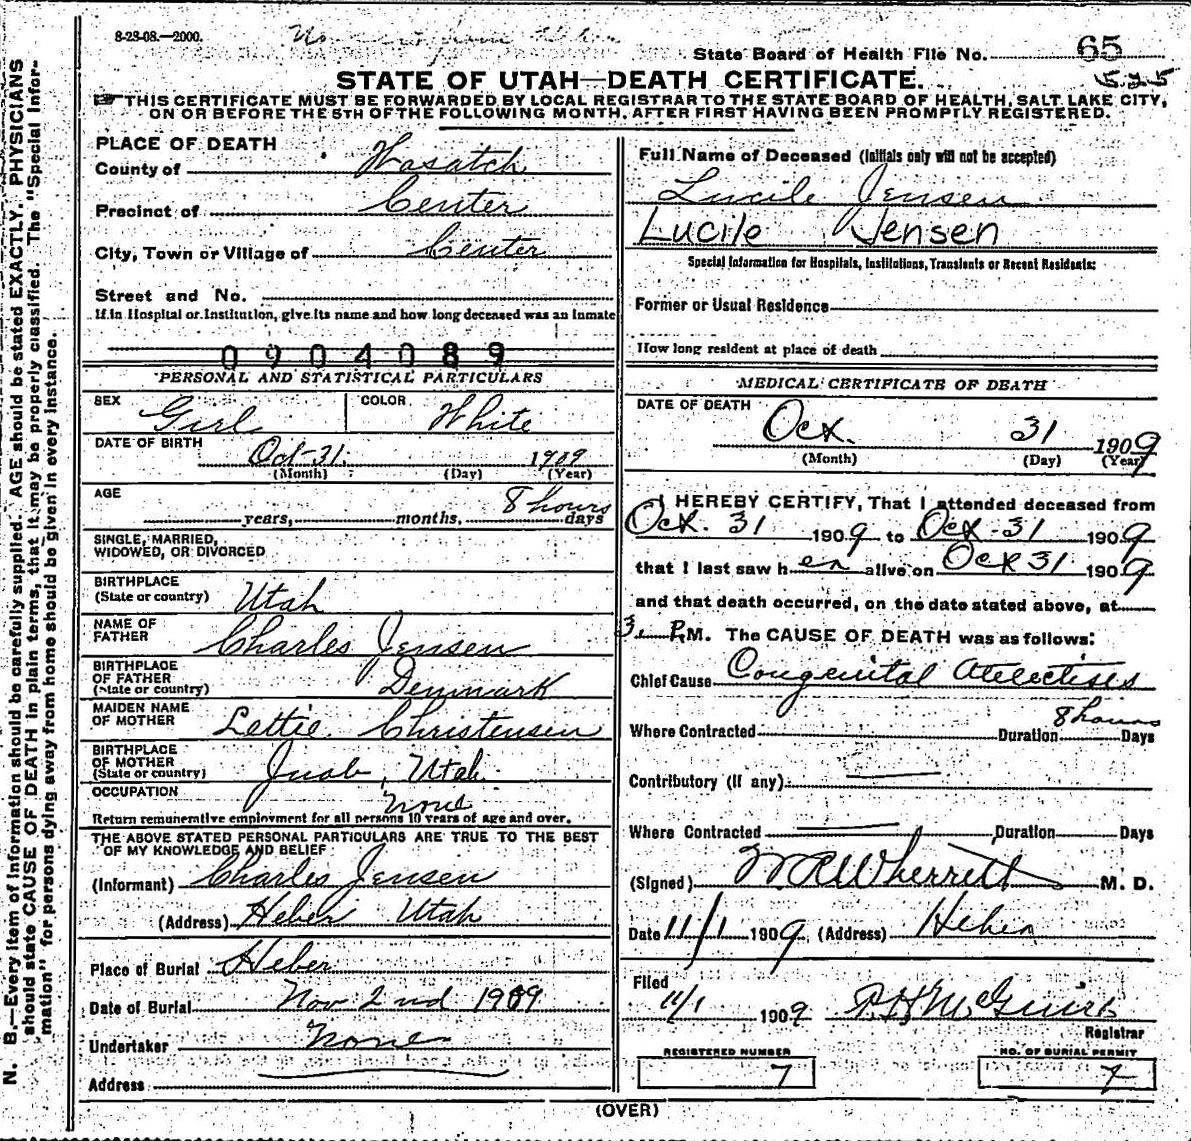 8-23-08.—2000.
State Board of Health File No. 65
STATE OF UTAH—DEATH CERTIFICATE. 525
☞ THIS CERTIFICATE MUST BE FORWARDED BY LOCAL REGISTRAR TO THE STATE BOARD OF HEALTH, SALT LAKE CITY,
ON OR BEFORE THE 5TH OF THE FOLLOWING MONTH, AFTER FIRST HAVING BEEN PROMPTLY REGISTERED.
N. B.—Every item of Information should be carefully supplied. AGE should be stated EXACTLY. PHYSICIANS
should state CAUSE OF DEATH in plain terms, that it may be properly classified. The "Special Infor-
mation" for persons dying away from home should be given in every instance.
PLACE OF DEATH
County of Wasatch
Precinct of Center
City, Town or Village of Center
Street and No.
If in Hospital or Institution, give its name and how long deceased was an inmate
0904089
PERSONAL AND STATISTICAL PARTICULARS
SEX Girl COLOR White
DATE OF BIRTH Oct-31. 1909
(Month) (Day) (Year)
AGE 8 hours
years, months, days
SINGLE, MARRIED,
WIDOWED, OR DIVORCED
BIRTHPLACE
(State or country) Utah
NAME OF
FATHER Charles Jensen
BIRTHPLACE
OF FATHER
(State or country) Denmark
MAIDEN NAME
OF MOTHER Lettie Christensen
BIRTHPLACE
OF MOTHER
(State or country) Juab, Utah.
OCCUPATION none
Return remunerative employment for all persons 10 years of age and over.
THE ABOVE STATED PERSONAL PARTICULARS ARE TRUE TO THE BEST
OF MY KNOWLEDGE AND BELIEF
(Informant) Charles Jensen
(Address) Heber Utah
Place of Burial Heber
Date of Burial Nov 2nd 1909
Undertaker None
Address
Full Name of Deceased (Initials only will not be accepted)
Lucile Jensen
Lucile Jensen
Special Information for Hospitals, Institutions, Transients or Recent Residents:
Former or Usual Residence
How long resident at place of death
MEDICAL CERTIFICATE OF DEATH
DATE OF DEATH Oct. 31 1909
(Month) (Day) (Year)
I HEREBY CERTIFY, That I attended deceased from
Oct. 31 1909 to Oct-31 1909
that I last saw her alive on Oct 31 1909
and that death occurred, on the date stated above, at
3 P.M. The CAUSE OF DEATH was as follows:
Chief Cause Congenital Atelectises
8 hours
Where Contracted Duration Days
Contributory (if any)
Where Contracted Duration Days
(Signed) Wherritt M. D.
Date 11/1 1909 (Address) Heber
Filed
11/1 1909 McGuire
Registrar
REGISTERED NUMBER
7
NO. OF BURIAL PERMIT
7
(OVER)